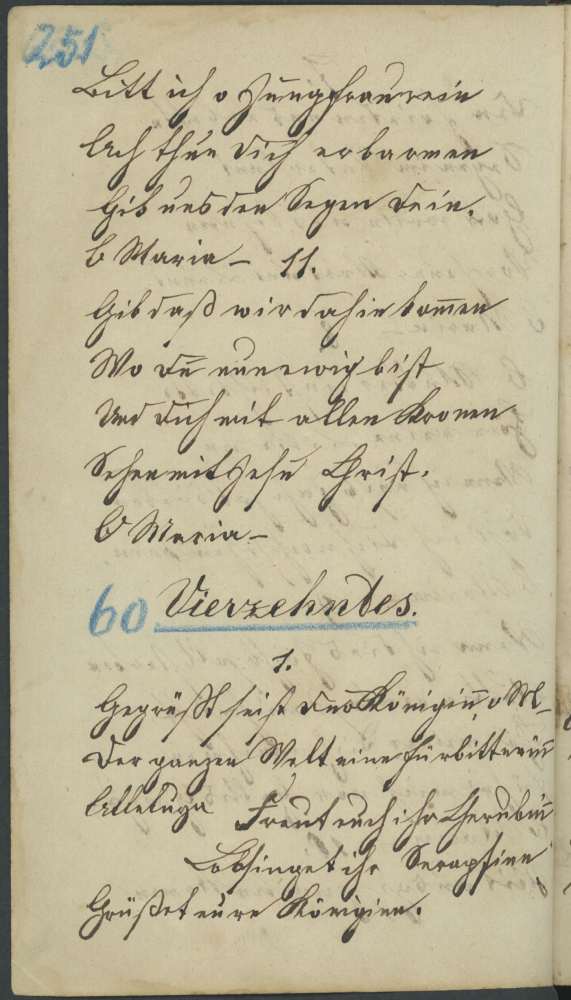 251
Bitt ich o Jungfrau rein
Ach thue dich erbarmen
Gib uns den Segen dein.
O Maria – 11.
Gib daß wir dahin kom̅en
Wo du nun ewig bist
Und dich mit allen Kronen
Sehen mit Jesu Christ.
O Maria –
60 Vierzehntes.
1.
Gegrüßt seist du o Königin̅, o M–
Der ganzen Welt eine Fürbitterin̅
Alleluga Freut euch ihr Cherubin̅
Lobsinget ihr Seraphinn
Grüßet eure Königinn.